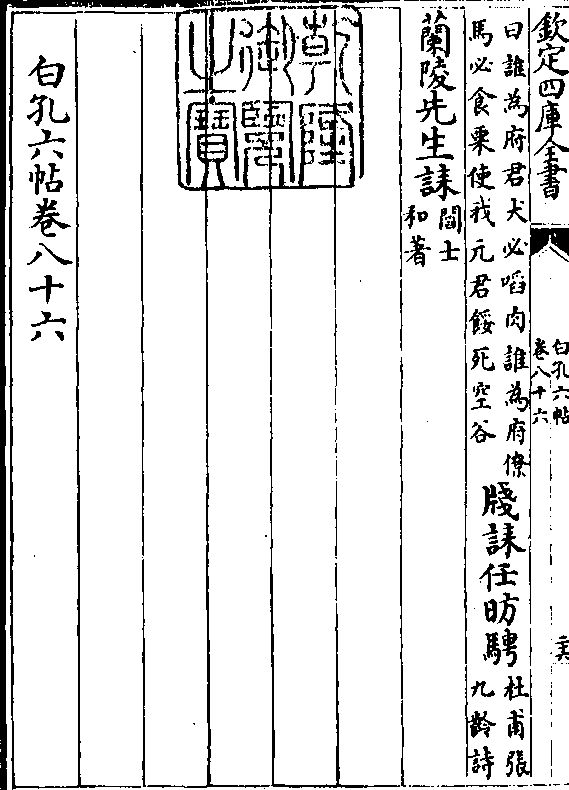 欽定四庫全書
白孔六帖
卷八十六
曰誰為府君犬必啗肉誰為府僚
馬必食粟使我元君餒死空谷
牋誄任昉騁
杜甫張
九齡詩
蘭陵先生誄
閻士
和著
乾隆
御覽
之寶
白孔六帖卷八十六